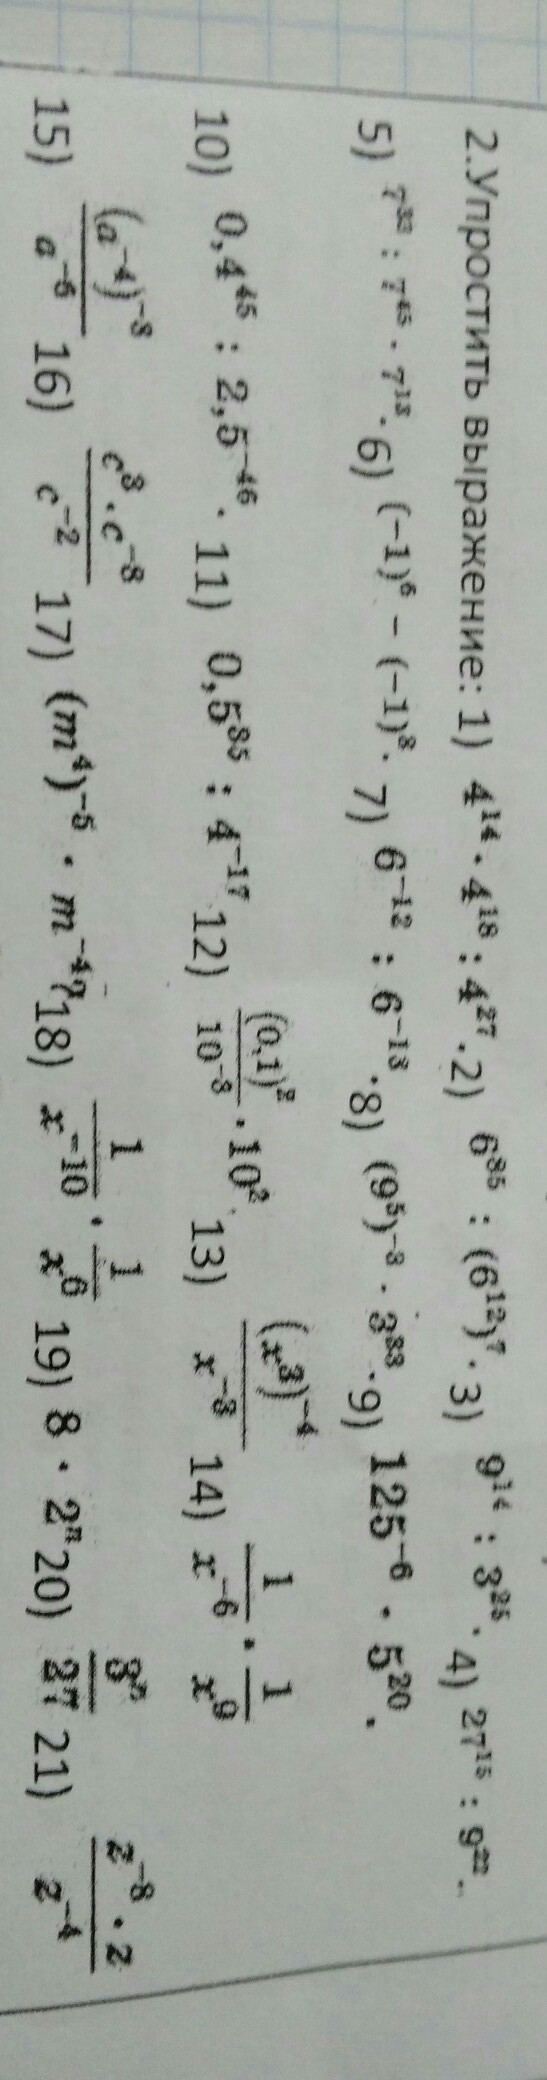 2.Упростить выражение: 1) 4¹⁴ · 4¹⁸ : 4²⁷ · 2) 6⁸⁵ : (6¹²)⁷ · 3) 9¹⁴ : 3²⁵ · 4) 27¹⁵ : 9²² ..
5) 7³³ : 7⁴⁵ · 7¹³ · 6) (−1)⁶ − (−1)⁸ · 7) 6⁻¹² : 6⁻¹³ · 8) (9⁵)⁻⁸ · 3⁸³ · 9) 125⁻⁶ · 5²⁰ .
10) 0,4⁴⁵ : 2,5⁻⁴⁶ · 11) 0,5³⁵ : 4⁻¹⁷ 12) (0,1)²/10⁻³ · 10² . 13) (x³)⁻⁴/x⁻³ 14) 1/x⁻⁶ · 1/x⁹
15) (a⁻⁴)⁻³/a⁻⁶ 16) c³ · c⁻⁸/c⁻² 17) (m⁴)⁻⁵ · m⁻⁴? 18) 1/x⁻¹⁰ · 1/x⁶ 19) 8 · 2ⁿ 20) 3ⁿ/27 21) 2⁻⁸ · 2/2⁻⁴